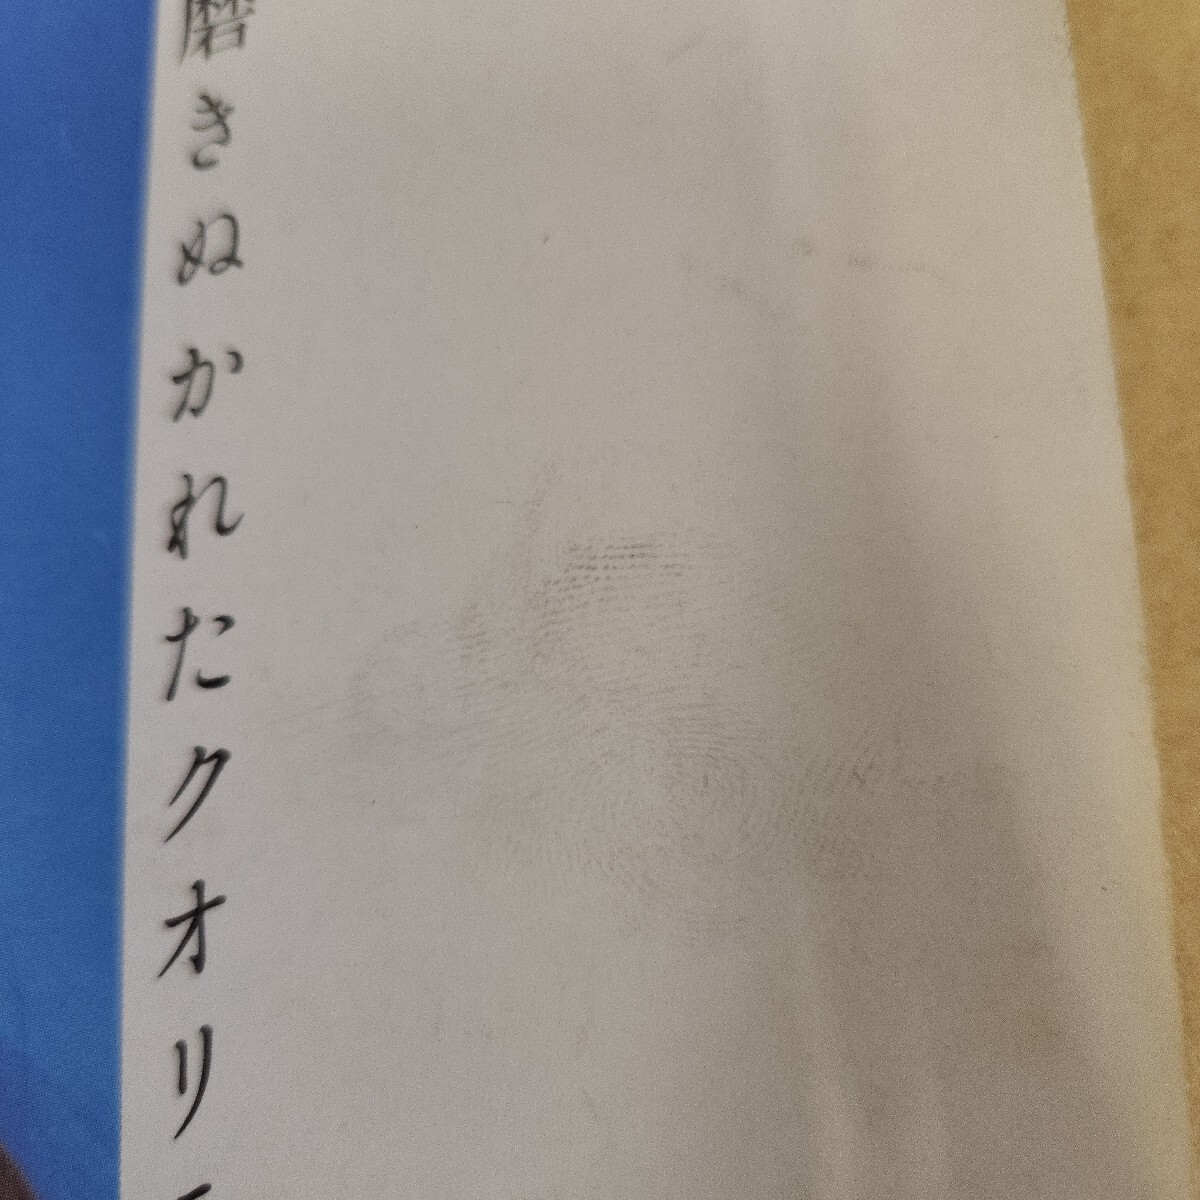 磨きぬかれたクオリ